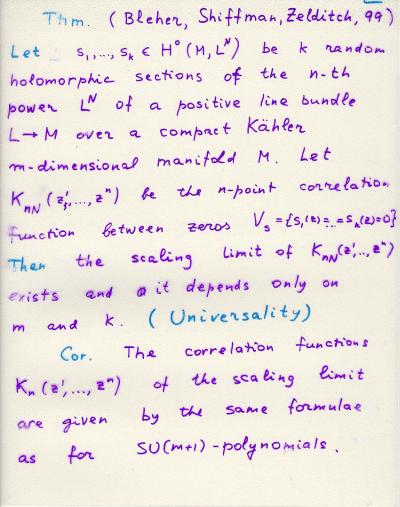 Thm. (Bleher, Shiffman, Zelditch, 99)
Let s₁,..., sₖ ∈ H°(M, Lᴺ) be k random
holomorphic sections of the n-th
power Lᴺ of a positive line bundle
L→M over a compact Kähler
m-dimensional manifold M. Let
K_{nN}(z¹,...,zⁿ) be the n-point correlation
function between zeros V_s={s₁(z)=...=sₖ(z)=0}
Then the scaling limit of K_{nN}(z¹,..,zⁿ)
exists and it depends only on
m and k. (Universality)
Cor. The correlation functions
Kₙ(z¹,...,zⁿ) of the scaling limit
are given by the same formulae
as for SU(m+1)-polynomials.